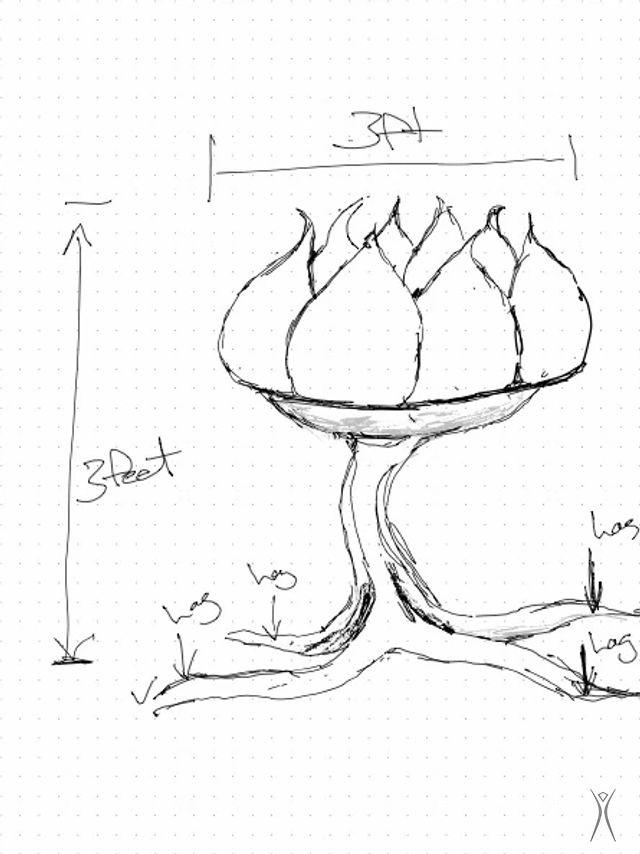 3ft
3feet
lag
lag
lag
lag